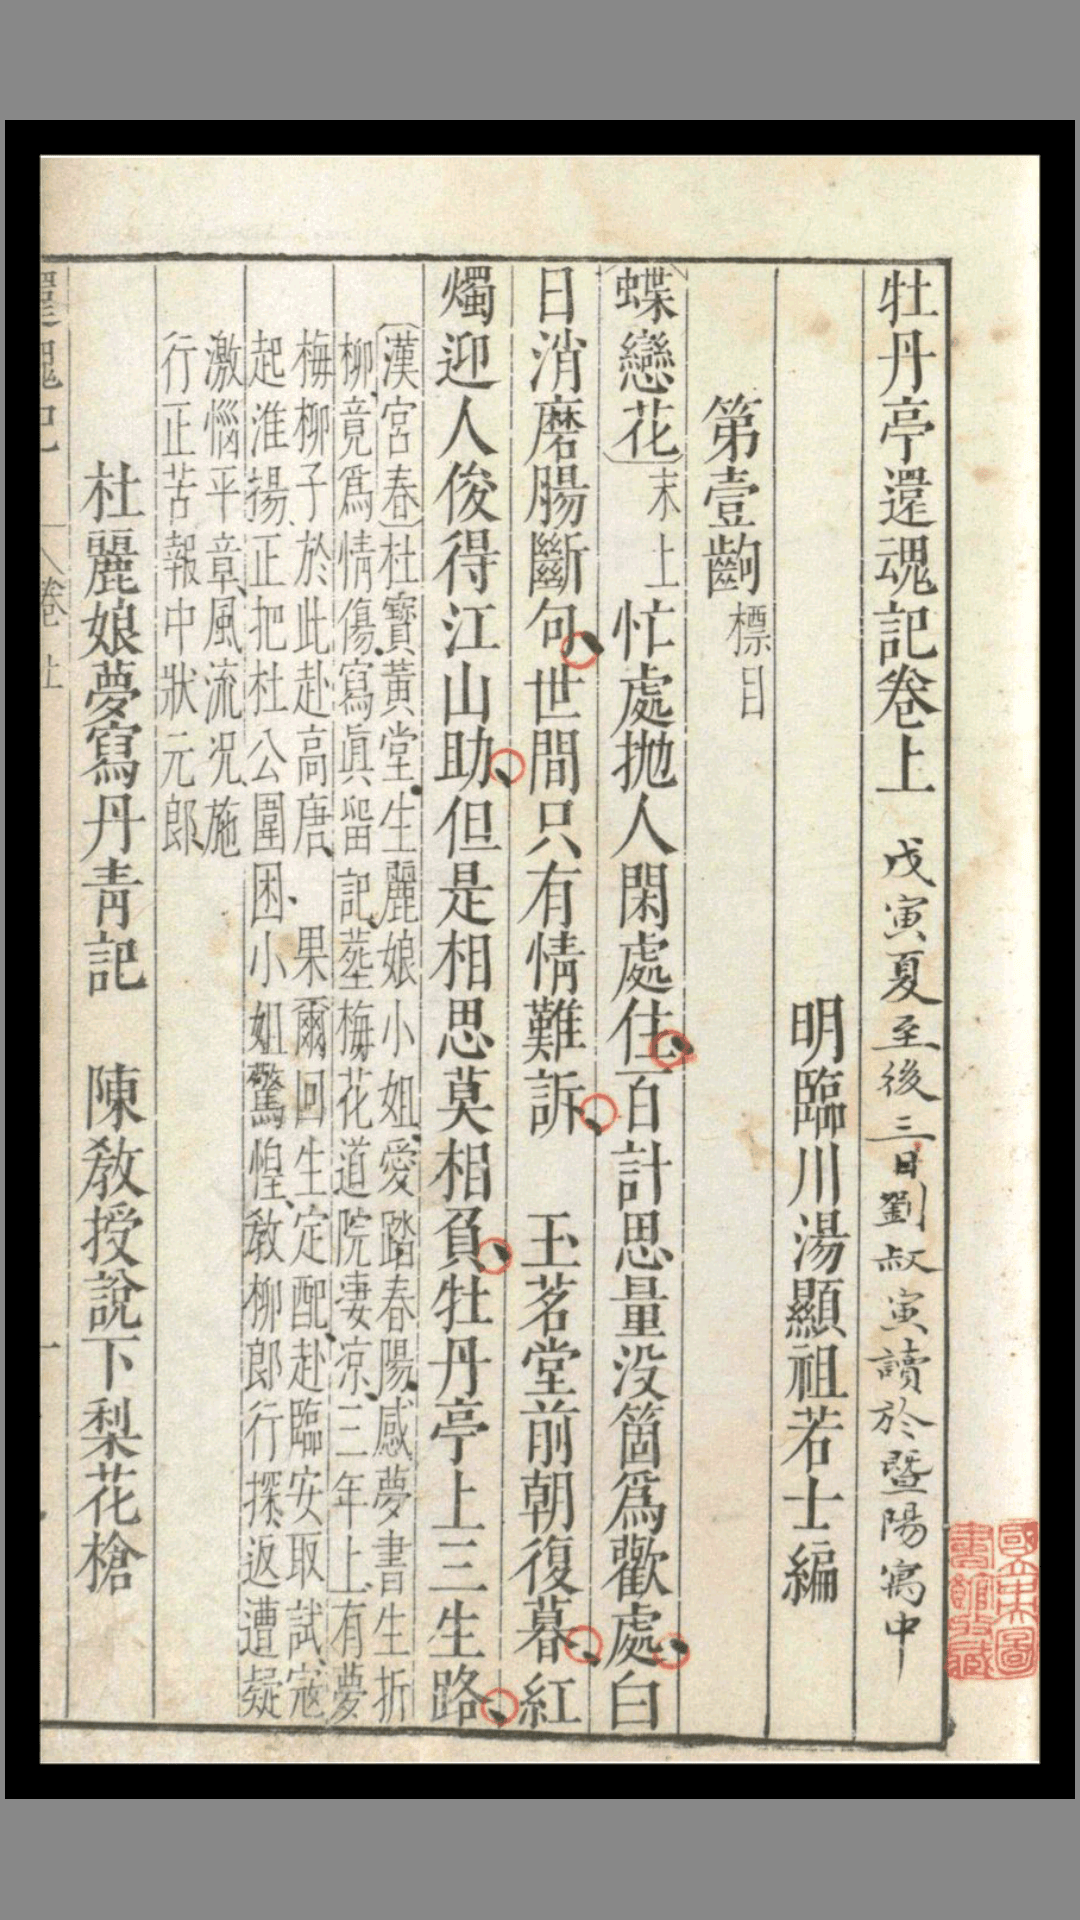 牡丹亭還魂記卷上 戊寅夏至後三日劉叔寅讀於暨陽寓中
明臨川湯顯祖若士編
第壹齣 標目
〔蝶戀花〕末上 忙處拋人閑處住百計思量没箇爲歡處白
日消磨腸斷句世間只有情難訴 玉茗堂前朝復暮紅
燭迎人俊得江山助但是相思莫相負牡丹亭上三生路
〔漢宮春〕杜寶黃堂生麗娘小姐愛踏春陽感夢書生折
柳竟爲情傷寫眞留記塟梅花道院淒凉三年上有夢
梅柳子於此赴高唐 果爾回生定配赴臨安取試寇
起淮揚正把杜公圍困小姐驚惶教柳郎行探返遭疑
激惱平章風流况施
行正苦報中狀元郎
杜麗娘夢寫丹青記 陳敎授說下梨花槍
卷上
國立中央圖書館收藏